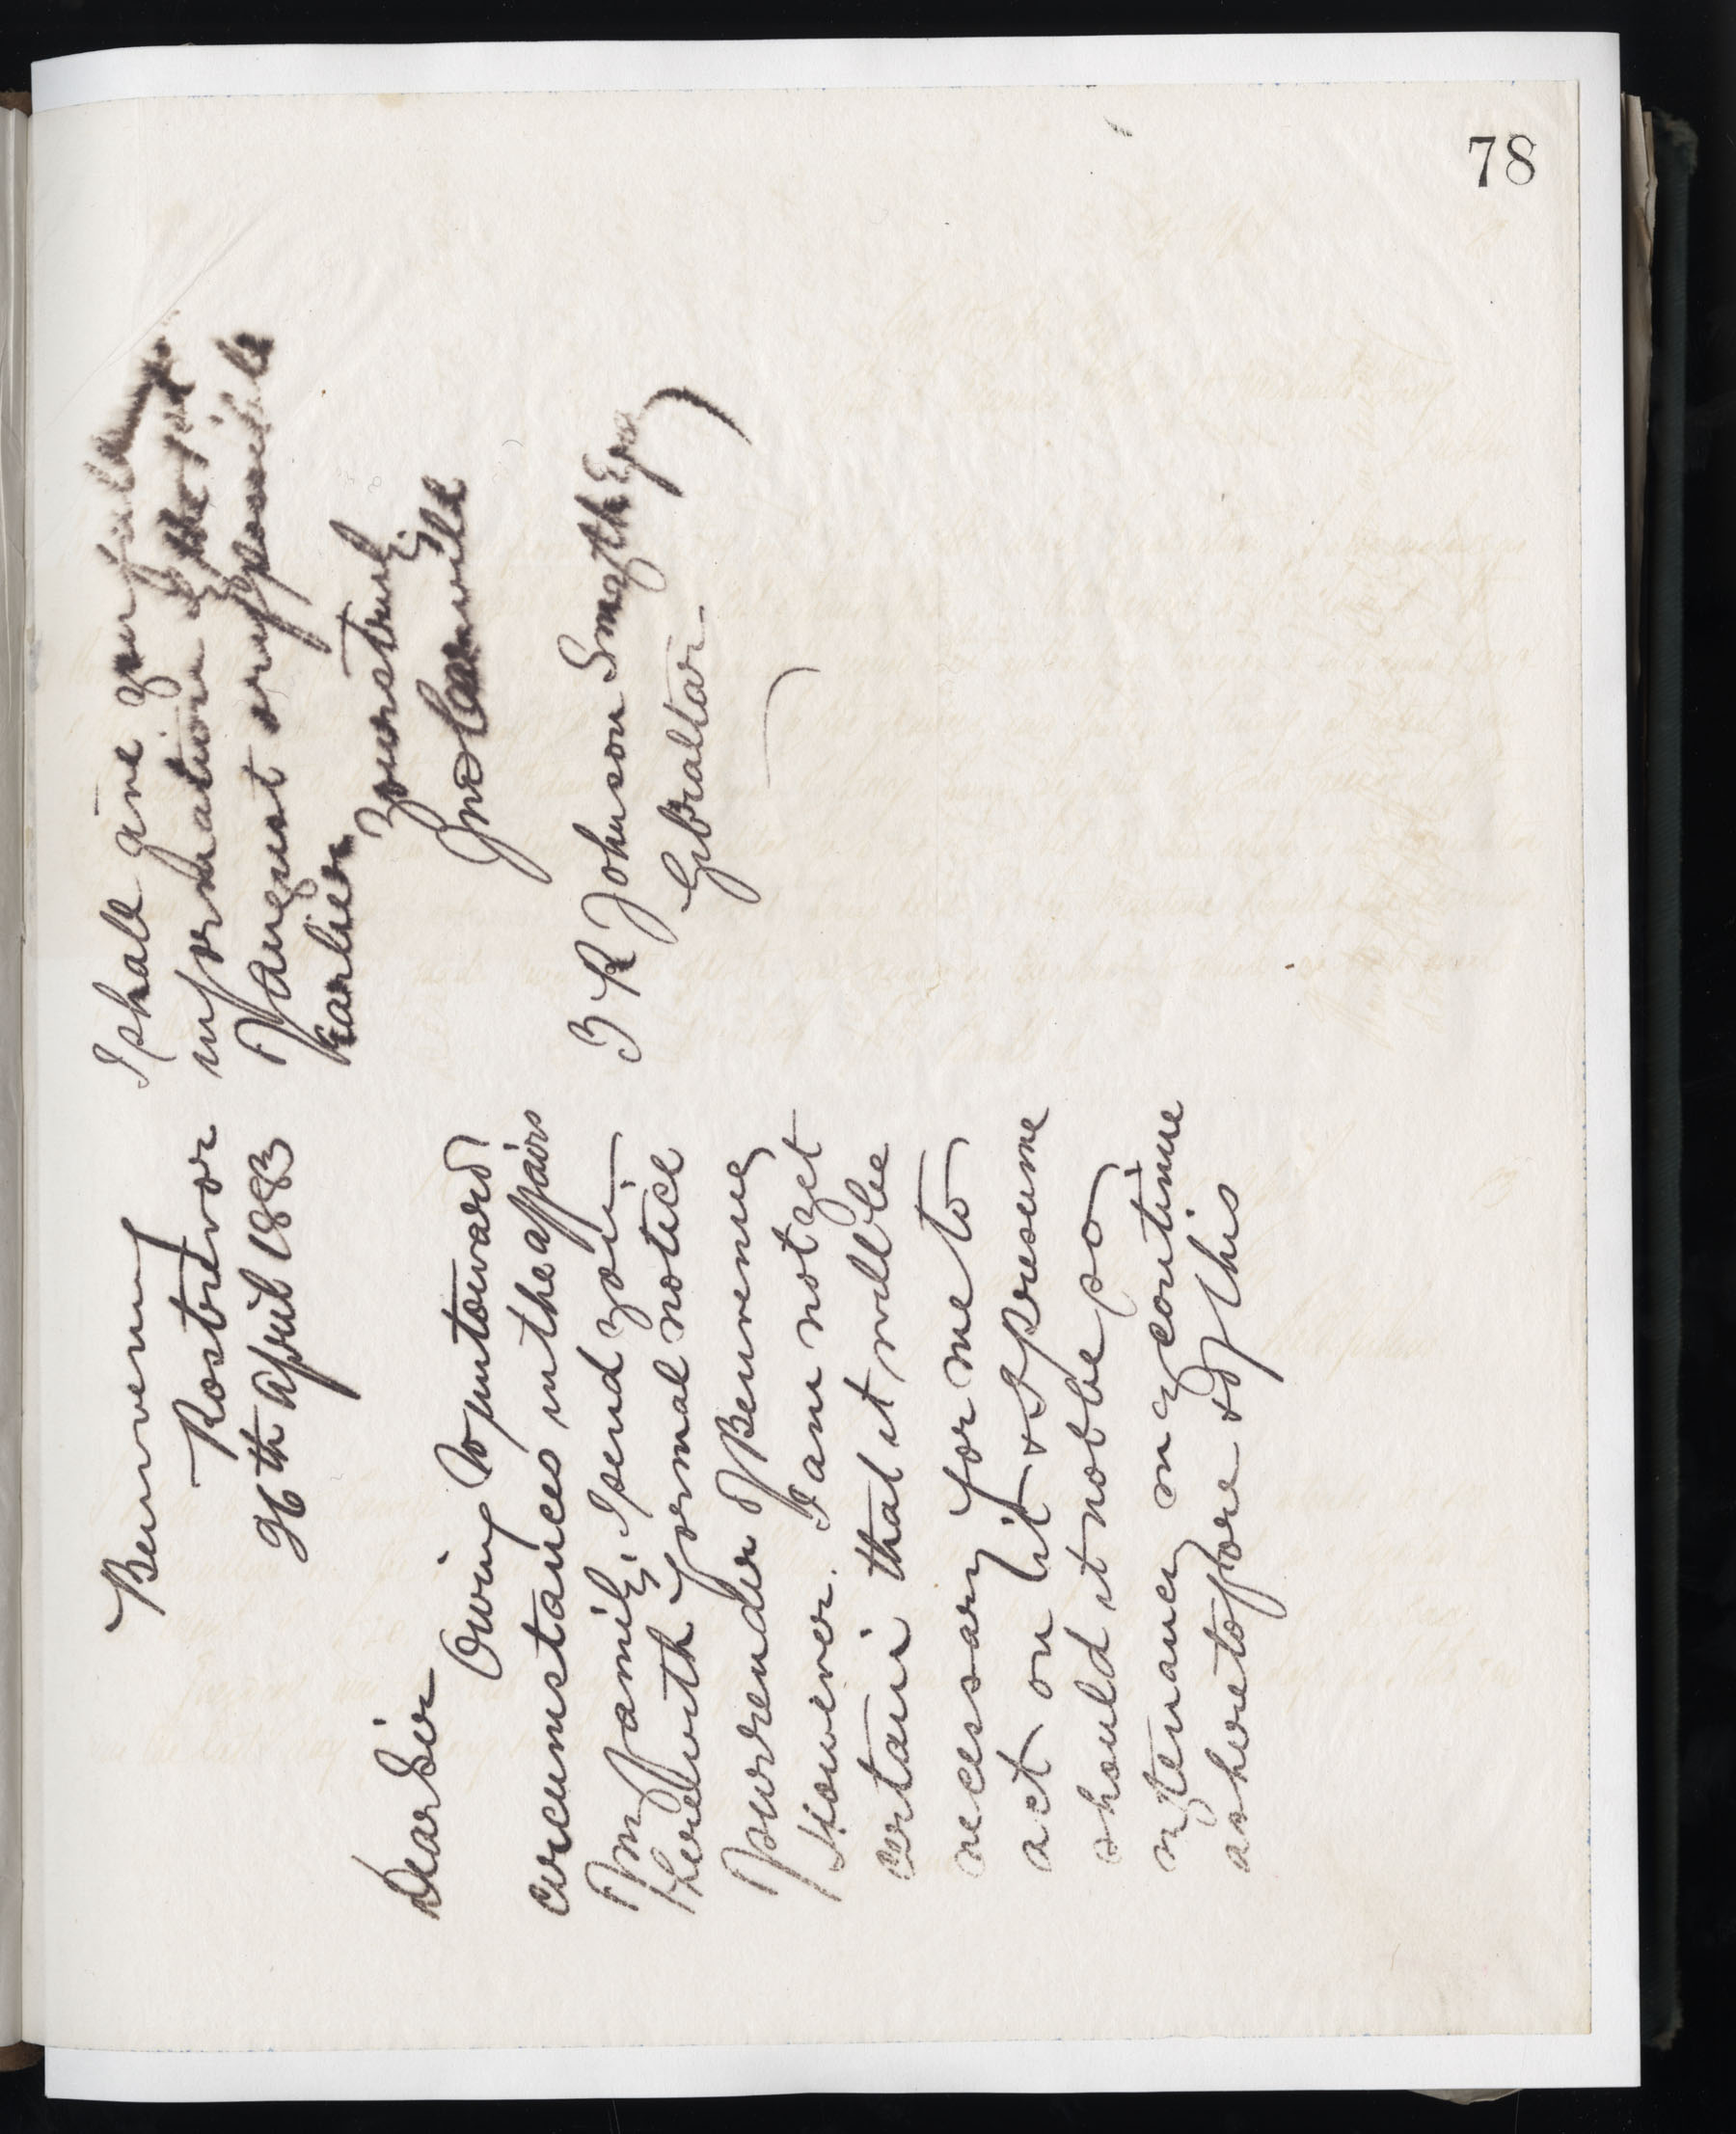 Benvenue
Rostrevor
26th April 1883
Dear Sir
Owing to untoward
circumstances in the affairs
of my family, I send you
herewith formal notice
of surrender of Benvenue
However. I am not yet
certain that it will be
necessary for me to
act on it & I presume
should it not be so
my tenancy may continue
as heretofore & of this
I shall give you full
information by the 1st
of August or if possible
earlier
Yours truly
Jno
J R Johnson Smyth Esq
Gibraltar
78